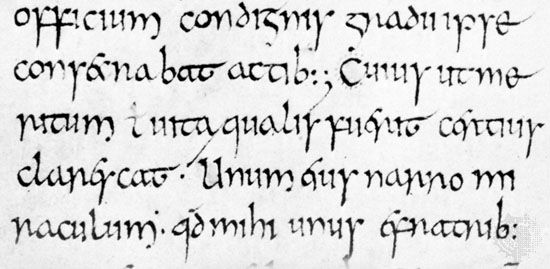 officium condignis gradu ipse
consecrabat actib:; Cuius ut me
ritum ł uita qualis fuerit certius
clarescat · Unum eius narro mi
raculum · qđ mihi unus e fratrib: